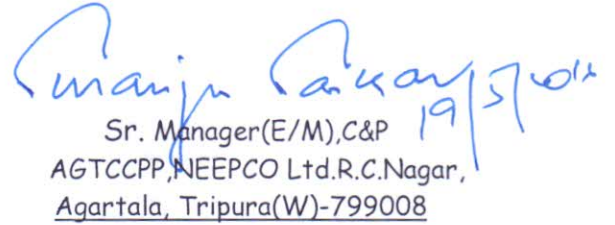 19/5/2018
Sr. Manager(E/M),C&P
AGTCCPP,NEEPCO Ltd.R.C.Nagar,
Agartala, Tripura(W)-799008